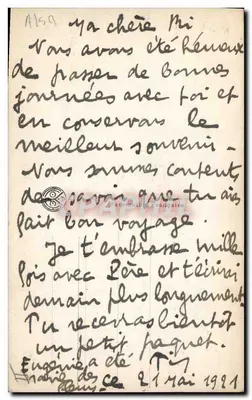 Ma chère Mi
Nous avons été heureux
de passer de bonnes
journées avec toi et
en conservons le
meilleur souvenir -
Nous sommes contents
de savoir que tu aies
fait bon voyage.
Je t'embrasse mille
fois avec Père et t'écrirai
demain plus longuement
Tu recevras bientôt
un petit paquet.
Eugénie a été
ce 21 Mai 1921